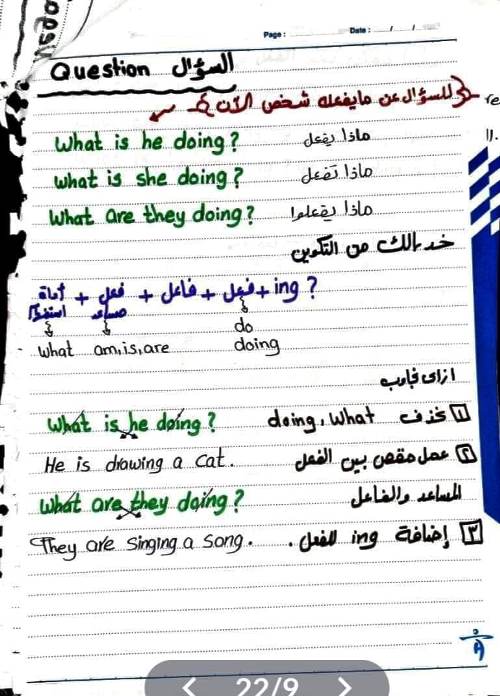 Page: Date: / /
Question السؤال
للسؤال عن ما يفعله شخص الآن
What is he doing? ماذا يفعل
What is she doing? ماذا تفعل
What are they doing? ماذا يفعلوا
خد بالك من التكوين
أداة استفهام + فعل مساعد + فاعل + فعل + ing ?
do
what am, is, are doing
ازاى تجاوب
What is he doing? ١ نحذف doing, What
He is drawing a cat. ٢ عمل مقص بين الفعل
What are they doing? المساعد والفاعل
They are singing a song. ٣ إضافة ing للفعل.
22/9